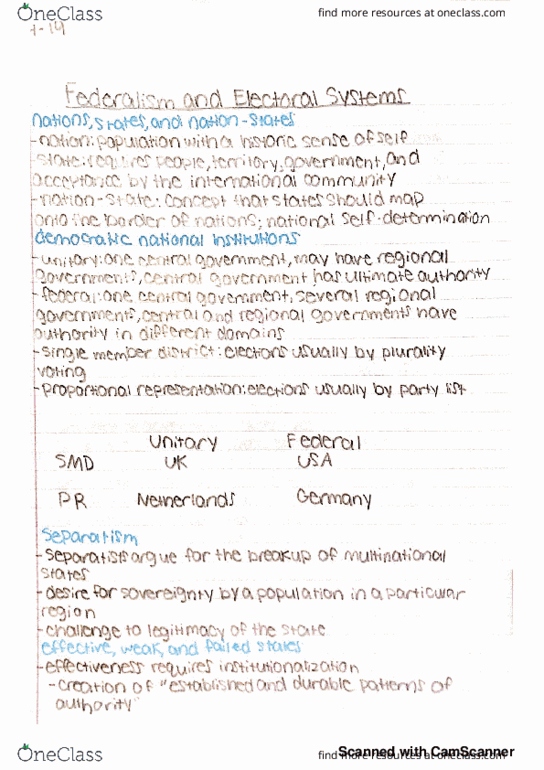 OneClass
find more resources at oneclass.com
1-14
Federalism and Electoral Systems
nations, states, and nation-states
-nation: population with a historic sense of self
-state: requires people, territory, government, and
acceptance by the international community
-nation-state: concept that states should map
onto the border of nations; national self-determination
democratic national institutions
-unitary: one central government, may have regional
governments, central government has ultimate authority
-federal: one central government, several regional
governments, central and regional governments have
authority in different domains
-single member district: elections usually by plurality
voting
-proportional representation: elections usually by party list
Unitary Federal
SMD UK USA
PR Netherlands Germany
Separatism
-separatists argue for the breakup of multinational
states
-desire for sovereignty by a population in a particular
region
-challenge to legitimacy of the state
effective, weak, and failed states
-effectiveness requires institutionalization
-creation of "established and durable patterns of
authority"
OneClass
find more resources at oneclass.com
Scanned with CamScanner